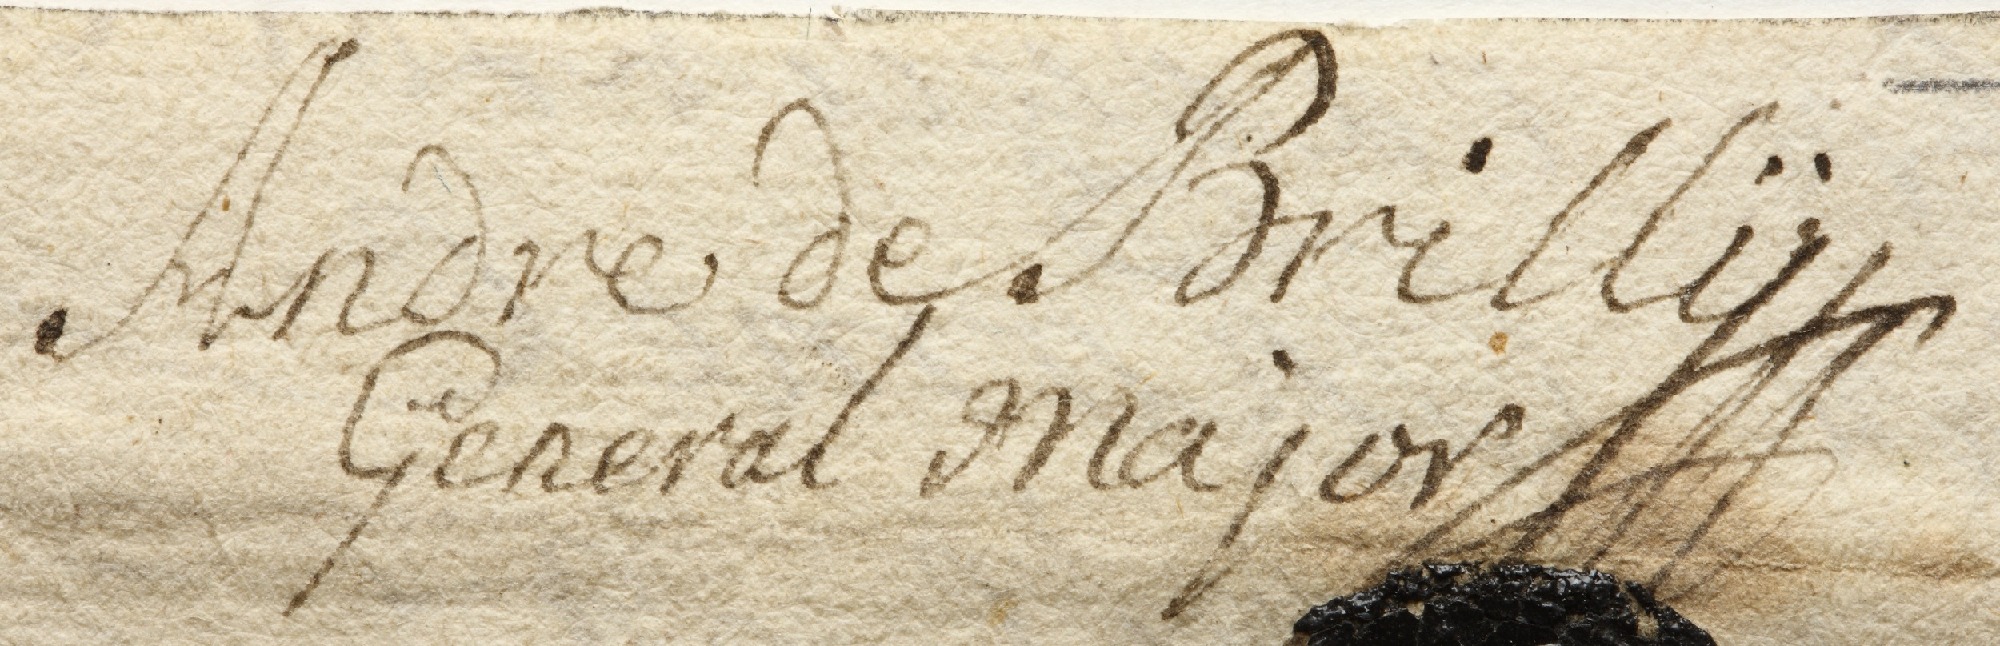 Andre de Brillÿ
General Major